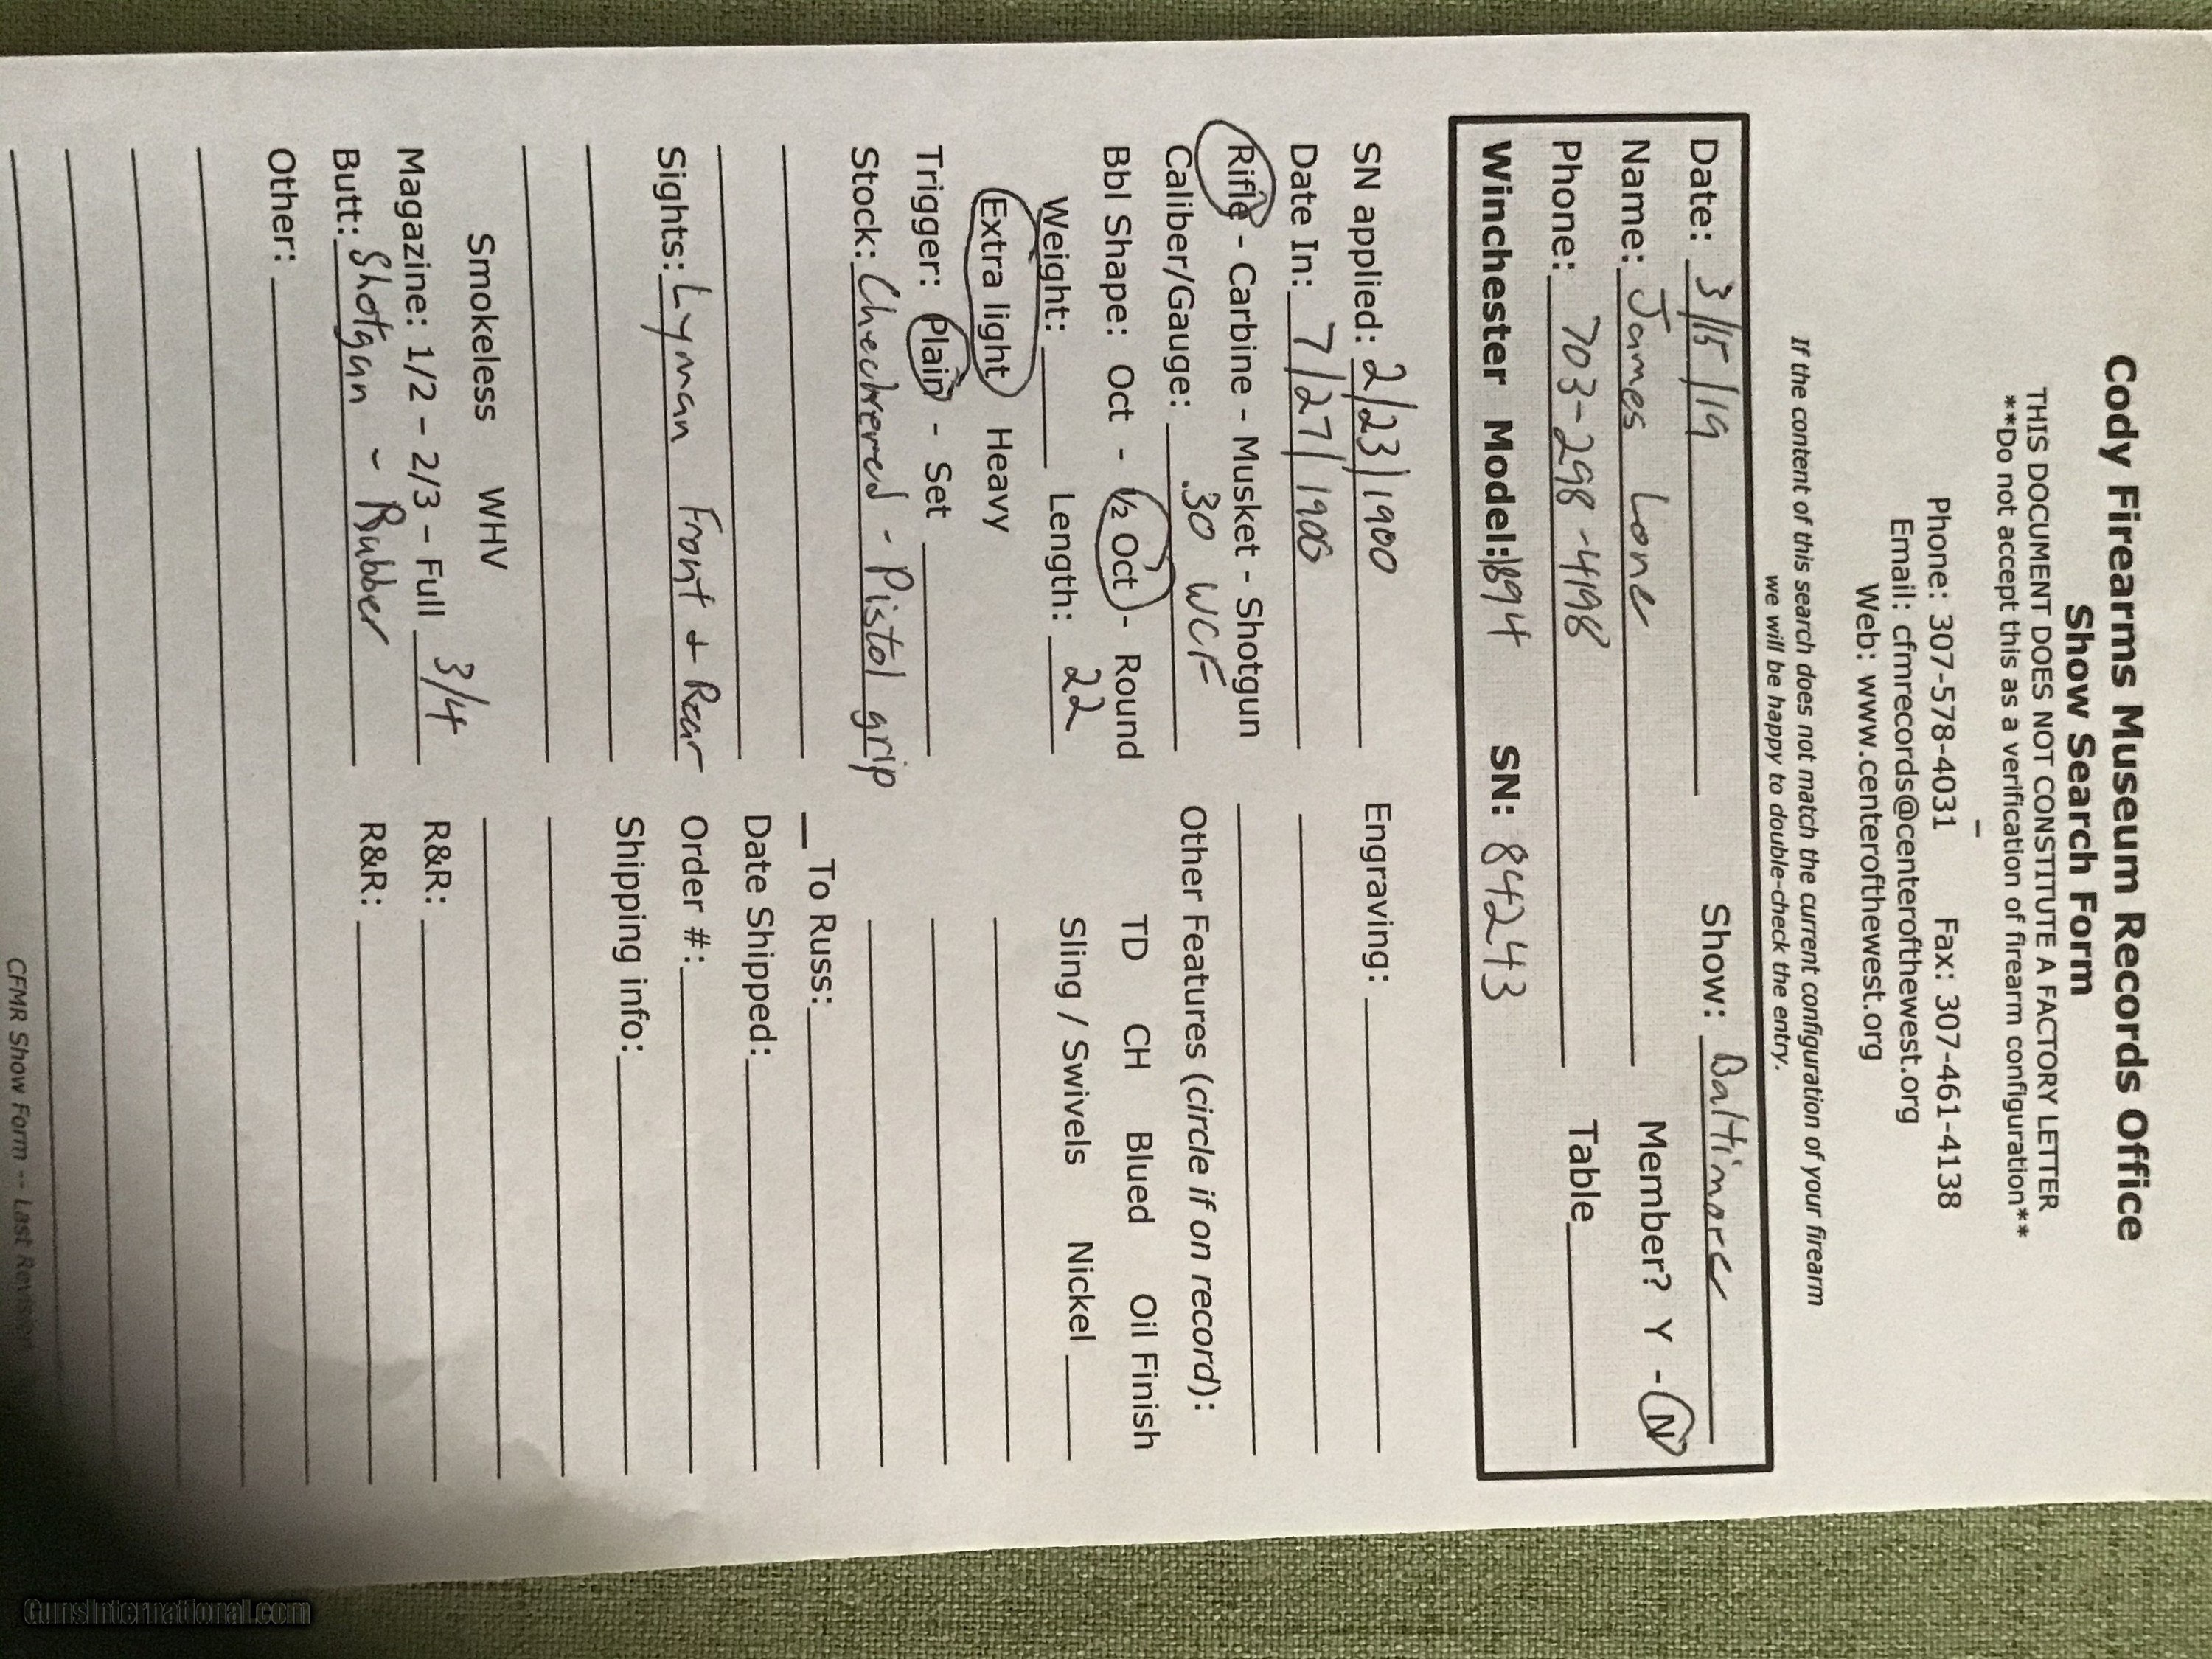 Cody Firearms Museum Records Office
Show Search Form
THIS DOCUMENT DOES NOT CONSTITUTE A FACTORY LETTER
**Do not accept this as a verification of firearm configuration**
Phone: 307-578-4031 Fax: 307-461-4138
Email: cfmrecords@centerofthewest.org
Web: www.centerofthewest.org
If the content of this search does not match the current configuration of your firearm
we will be happy to double-check the entry.
Date: 3/15/19 Show: Baltimore
Name: James Lone Member? Y - N
Phone: 703-298-4198 Table
Winchester Model: 1894 SN: 84243
SN applied: 2/23/1900
Date In: 7/27/1900
Rifle - Carbine - Musket - Shotgun
Caliber/Gauge: .30 WCF
Bbl Shape: Oct - 1/2 Oct - Round
Weight: Length: 22
Extra light Heavy
Trigger: Plain - Set
Stock: Checkered - Pistol grip
Sights: Lyman Front + Rear
Smokeless WHV
Magazine: 1/2 - 2/3 - Full 3/4
Butt: Shotgun - Rubber
Other:
Engraving:
Other Features (circle if on record):
TD CH Blued Oil Finish
Sling / Swivels Nickel
To Russ:
Date Shipped:
Order #:
Shipping info:
R&R:
R&R:
CFMR Show Form -- Last Revision
GunsInternational.com